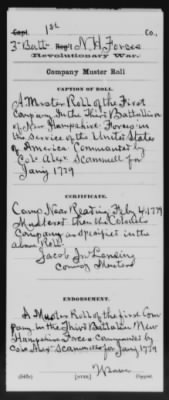 Capt. 1st Co.,
3d Batt'n Reg't N.H. Forces
Revolutionary War.
Company Muster Roll
CAPTION OF ROLL.
A Muster Roll of the First
Company In the Third Battalion
of New Hampshire Forces in
the Service of the United States
of America Commanded by
Col. Alexr. Scammell for
Jany 1779
CERTIFICATE.
Camp Near Reading Feby 4 1779
Mustered then the Colonels
Company as specified in the
above Roll
Jacob Jn Lansing
Comsy Musters
ENDORSEMENT.
A Muster Roll of the first Com
pany in the Third Battalion New
Hampshire Forces Commanded by
Col. Alexr Scammell for Jany 1779
Copyist.